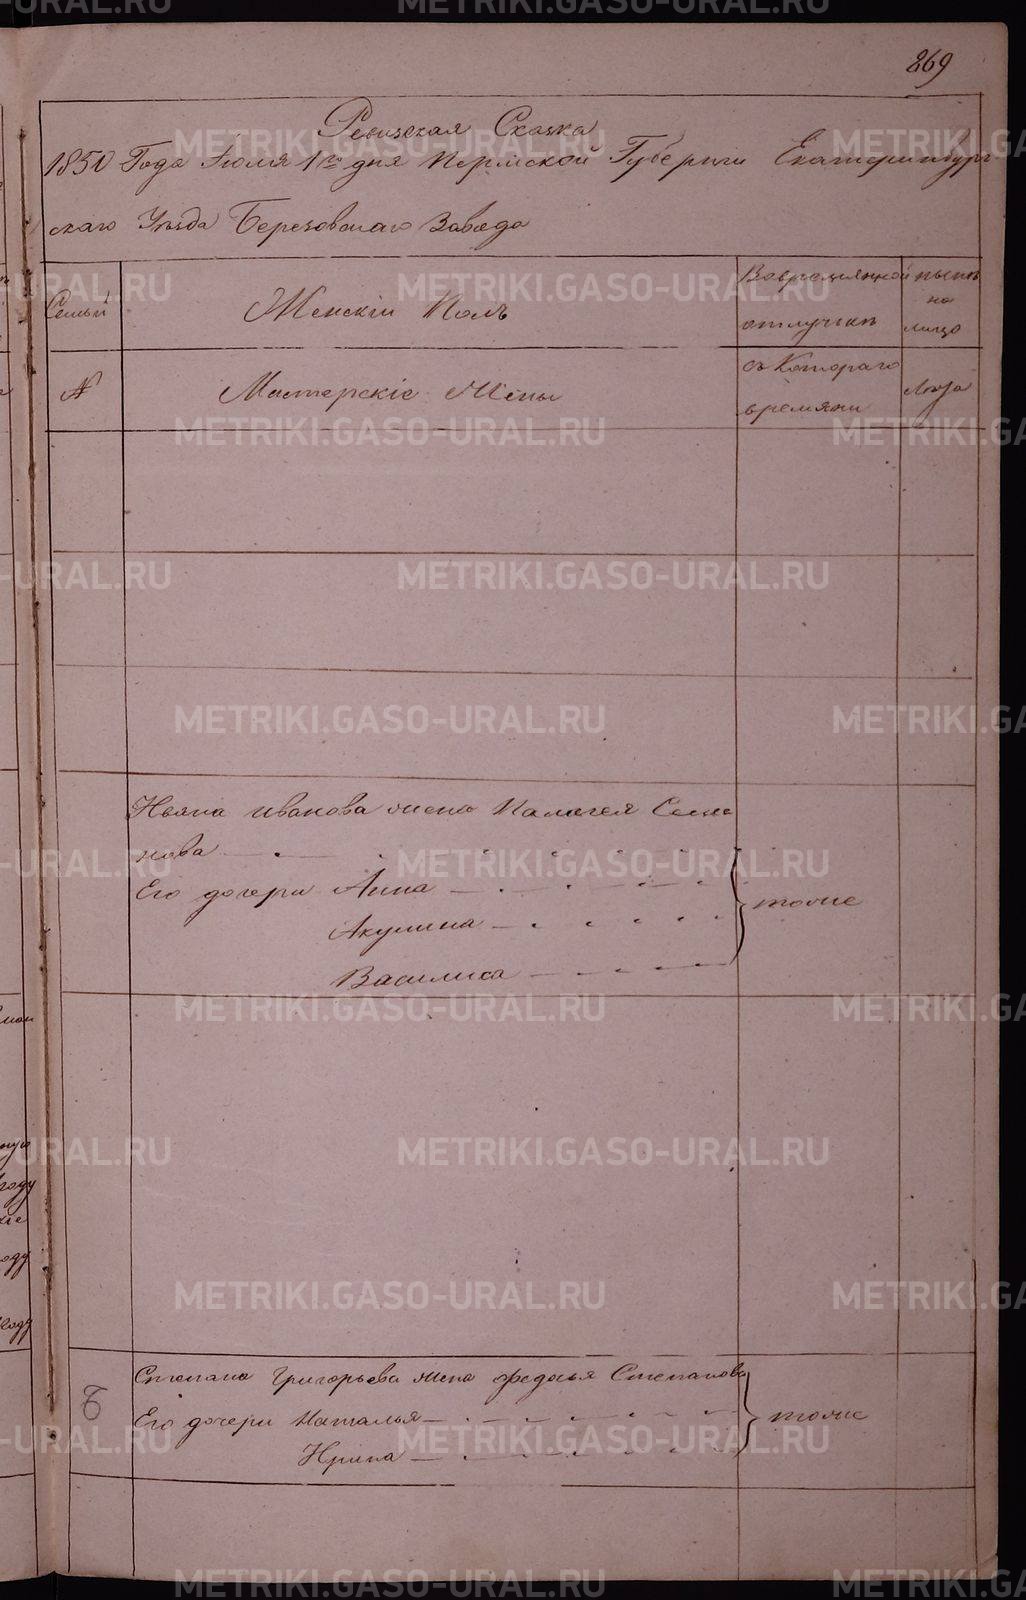 869
Ревизская Сказка
1850 Года Июля 1го дня Пермской Губернии Екатеринбург-
скаго Уезда Березовскаго Завода
Семьи
Женскiй Полъ
Во временной
отлучке
ныне
на
лицо
№
Мастерскiе Жены
съ Котораго
времяни
Лета
Ивана Иванова жена Палагея Семе
нова
Его дочери Анна
Акулина
Василиса
тоже
Степана Григорьева жена Федосья Степанова
6
Его дочери Наталья
тоже
Ирина
METRIKI.GASO-URAL.RU